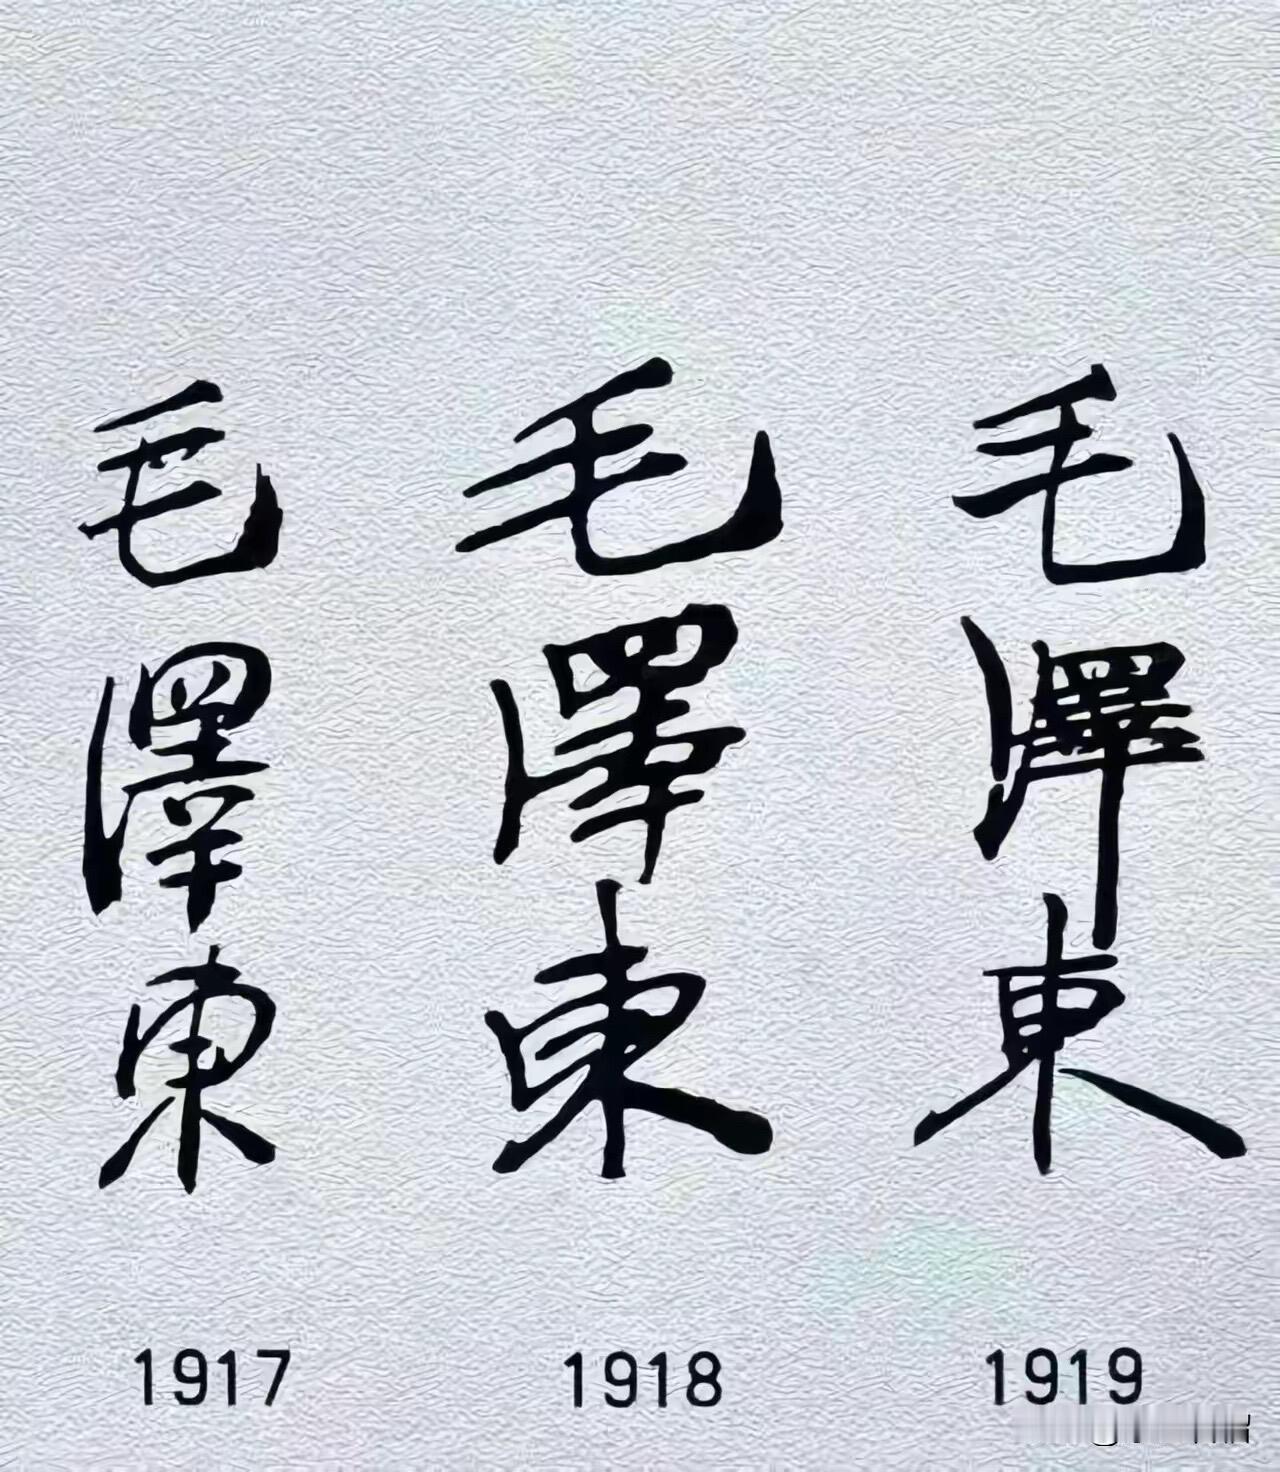 毛澤東
毛澤東
毛澤東
1917
1918
1919